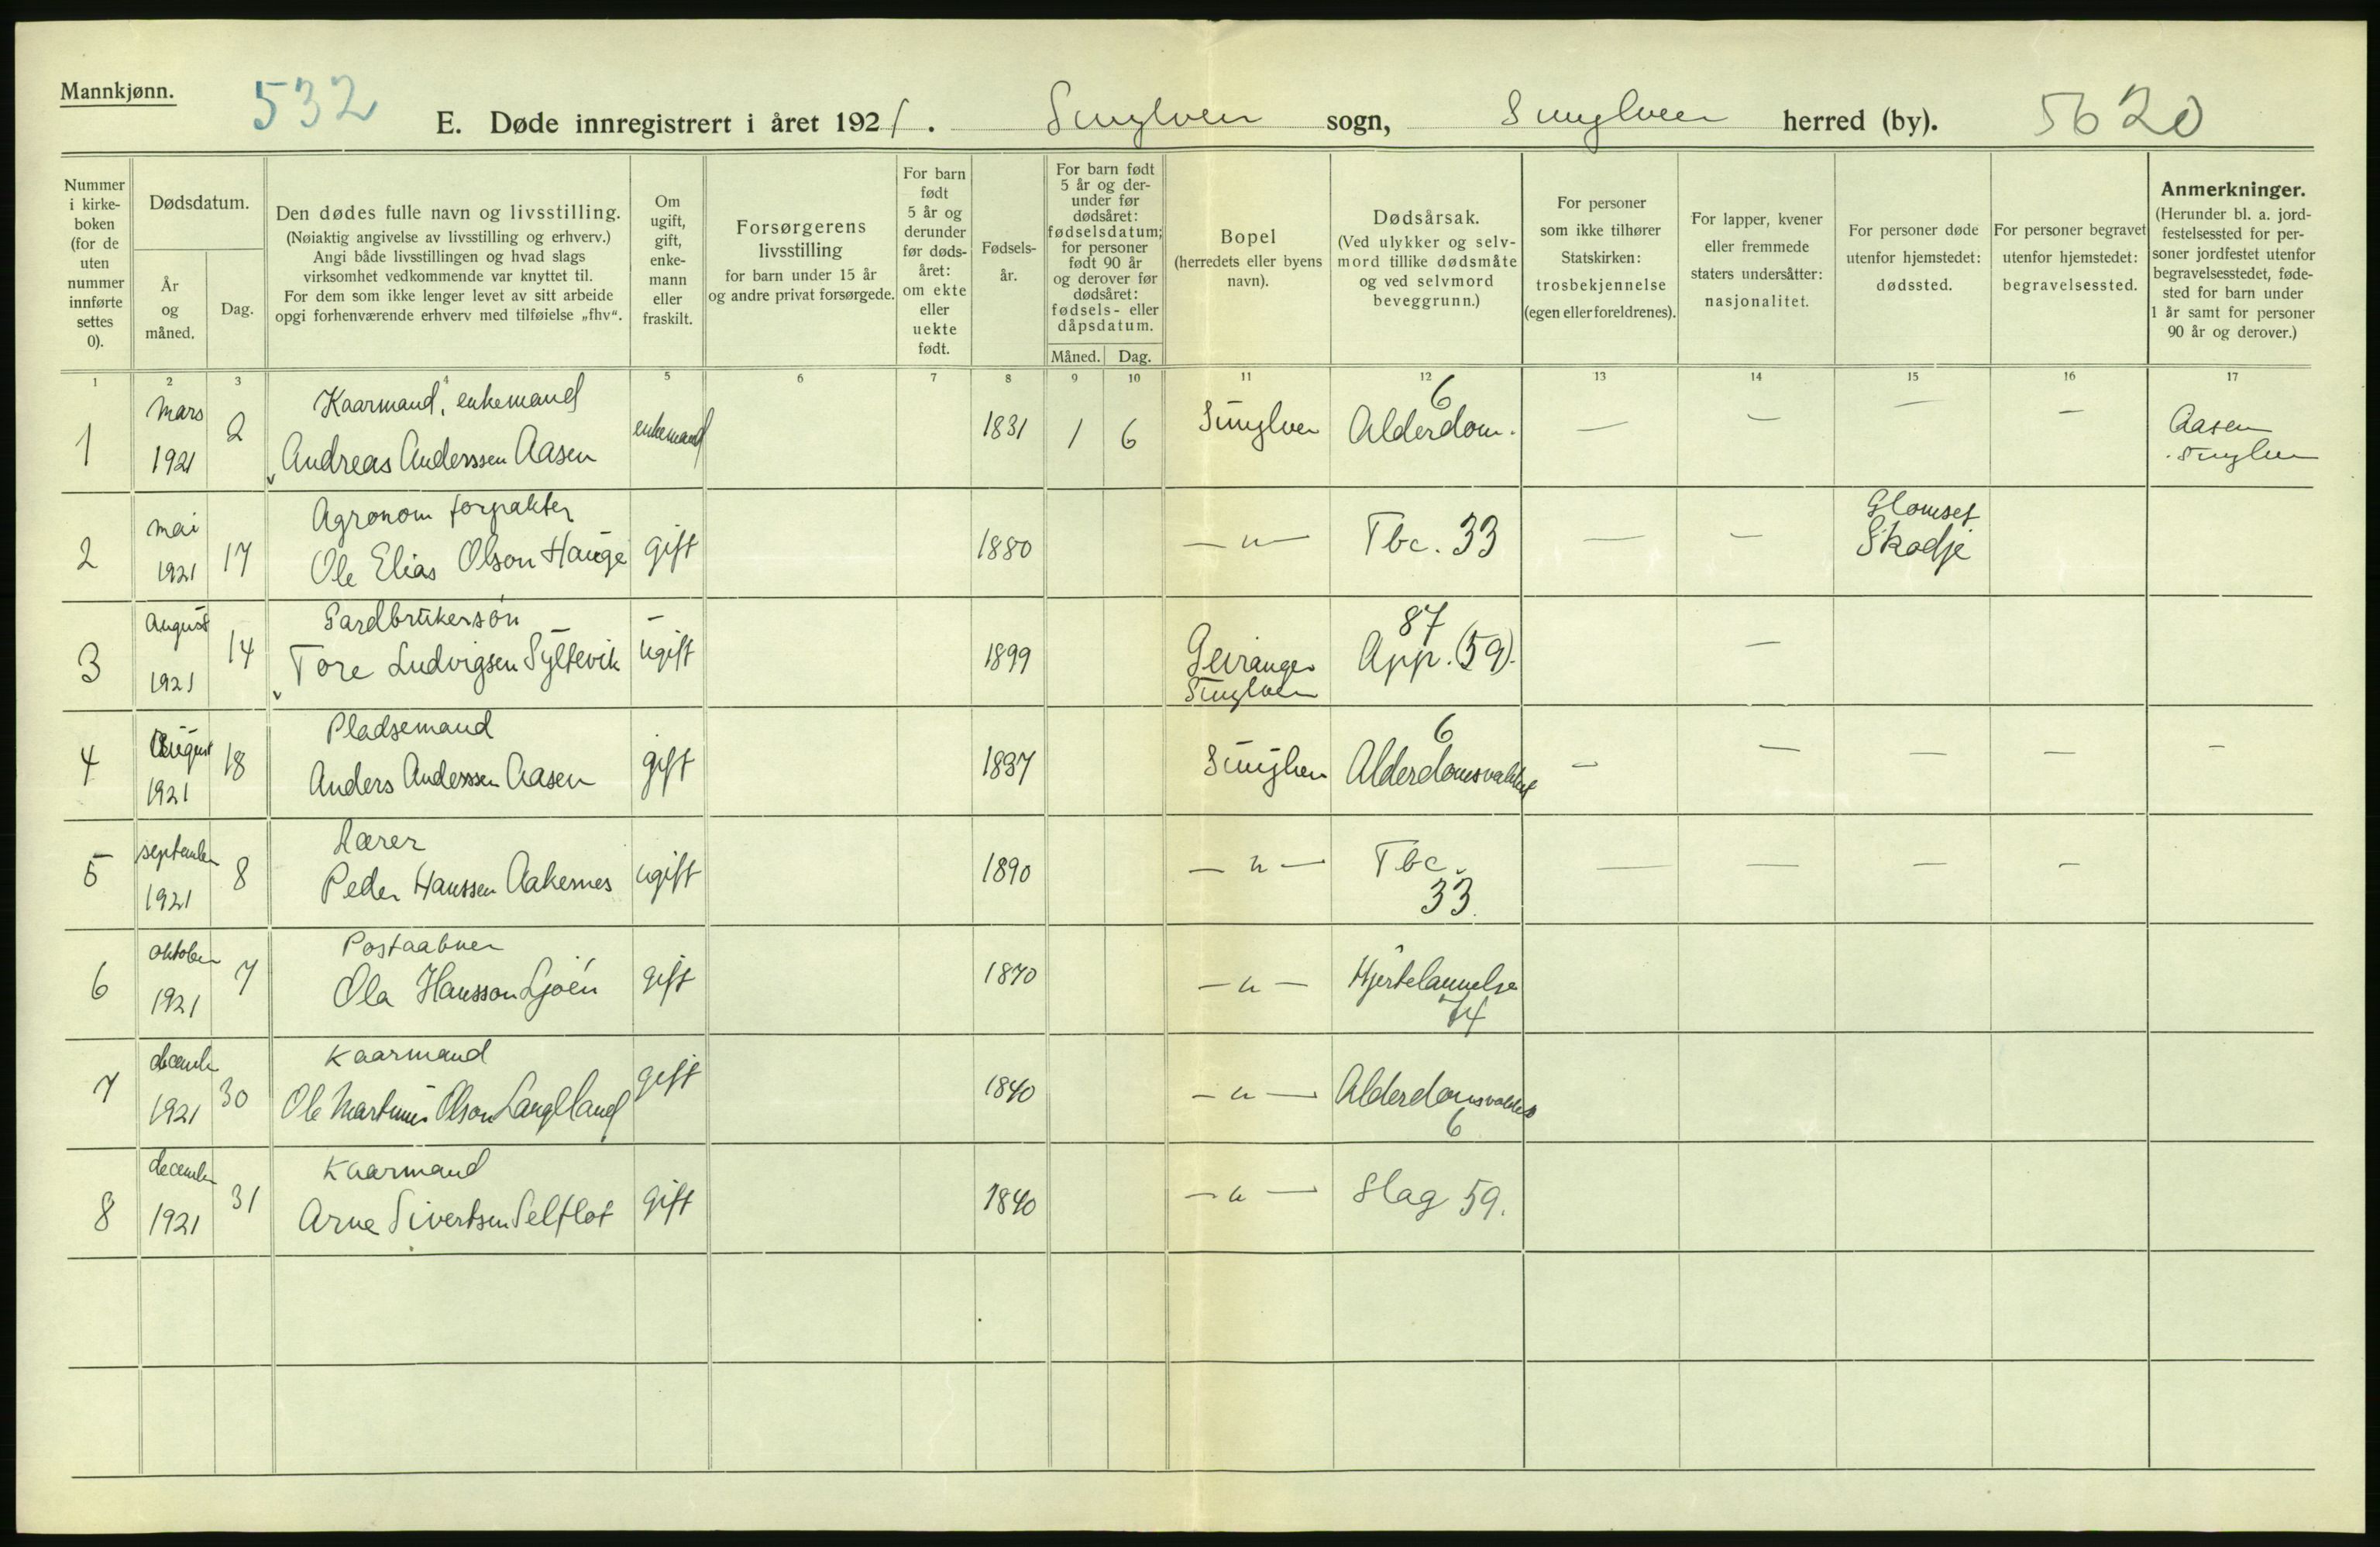 Mannkjønn.
532
E. Døde innregistrert i året 1921. Sunylven sogn, Sunylven herred (by). 5620
Nummer i kirke-boken (for de uten nummer innførte settes 0).
Dødsdatum.
År og måned.
Dag.
Den dødes fulle navn og livsstilling.
(Nøiaktig angivelse av livsstilling og erhverv.)
Angi både livsstillingen og hvad slags
virksomhet vedkommende var knyttet til.
For dem som ikke lenger levet av sitt arbeide
opgi forhenværende erhverv med tilføielse „fhv“.
Om ugift, gift, enke-mann eller fraskilt.
Forsørgerens
livsstilling
for barn under 15 år
og andre privat forsørgede.
For barn født 5 år og derunder før døds-året: om ekte eller uekte født.
Fødsels-år.
For barn født 5 år og der-under før dødsåret: fødselsdatum; for personer født 90 år og derover før dødsåret: fødsels- eller dåpsdatum.
Måned.
Dag.
Bopel
(herredets eller byens
navn).
Dødsårsak.
(Ved ulykker og selv-
mord tillike dødsmåte
og ved selvmord
beveggrunn.)
For personer
som ikke tilhører
Statskirken:
trosbekjennelse
(egen eller foreldrenes).
For lapper, kvener
eller fremmede
staters undersåtter:
nasjonalitet.
For personer døde
utenfor hjemstedet:
dødssted.
For personer begravet
utenfor hjemstedet:
begravelsessted.
Anmerkninger.
(Herunder bl. a. jord-
festelsessted for per-
soner jordfestet utenfor
begravelsesstedet, føde-
sted for barn under
1 år samt for personer
90 år og derover.)
1 2 3 4 5 6 7 8 9 10 11 12 13 14 15 16 17
1 mars 1921 2 Kaarmand, enkemand
Andreas Anderssen Aasen enkemand 1831 1 6 Sunylven 6 Alderdom. — — — — Aasen Sunylven
2 mai 1921 17 Agronom forpakter
Ole Elias Olson Hauge gift 1880 — " — Tbc. 33 — — Glomset Skodje
3 August 1921 14 Gardbrukersøn
Tore Ludvigsen Syltevik ugift 1899 Geiranger Sunylven 87 App. (59). —
4 August 1921 18 Pladsemand
Anders Anderssen Aasen gift 1837 Sunylven 6 Alderdomsvakhet — — — — —
5 september 1921 8 Lærer
Peder Hanssen Aakernes ugift 1890 — " — Tbc. 33. — — — —
6 oktober 1921 7 Postaabner
Ola Hansson Ljøen gift 1870 — " — Hjertelammelse 74
7 december 1921 30 Kaarmand
Ole Martinus Olson Langlland gift 1840 — " — Alderdomsvakhet 6
8 december 1921 31 Kaarmand
Arne Sivertsen Selflot gift 1840 — " — Slag 59.